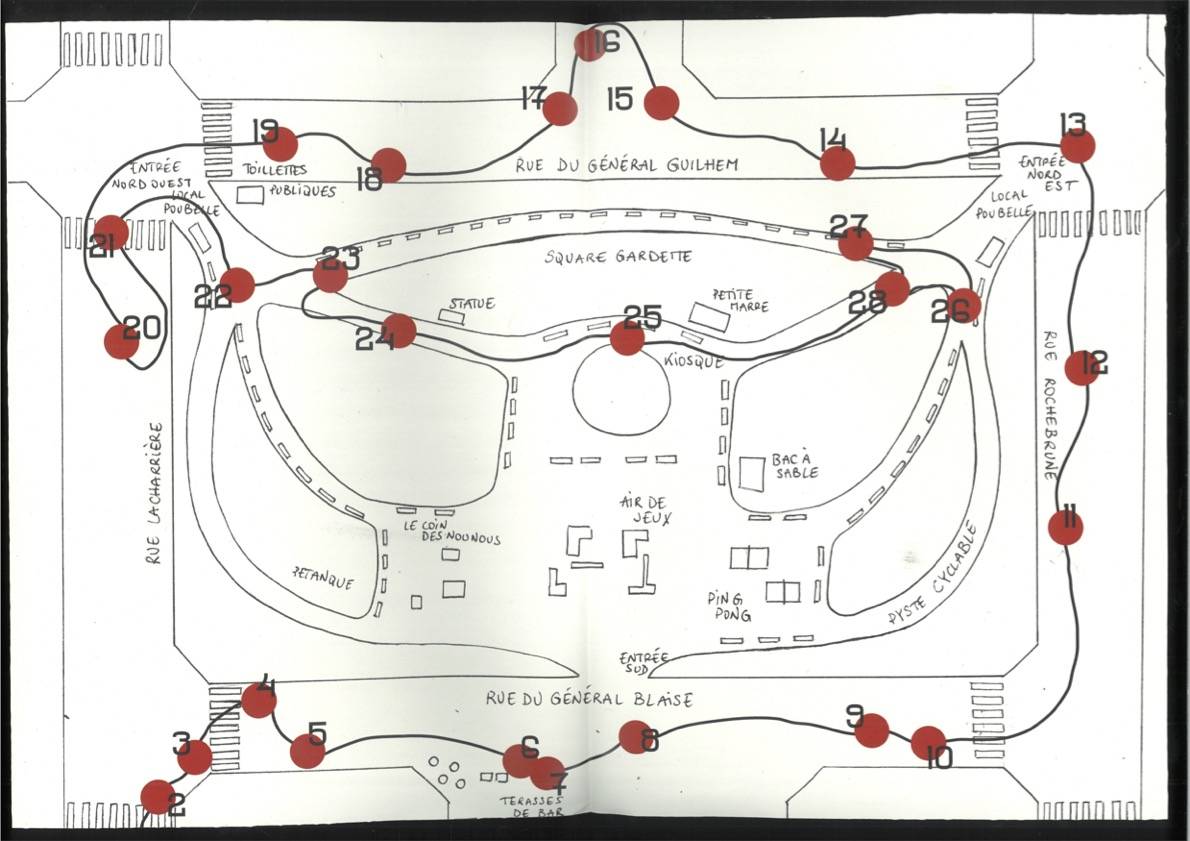 16
17
15
19
13
14
18
ENTRÉE
NORD OUEST
TOILLETTES
PUBLIQUES
RUE DU GÉNÉRAL GUILHEM
ENTRÉE
NORD
EST
LOCAL
POUBELLE
LOCAL
POUBELLE
21
27
23
SQUARE GARDETTE
22
28
26
STATUE
PETITE
MARRE
20
24
25
KIOSQUE
12
RUE LACHARRIÈRE
RUE ROCHEBRUNE
BAC À
SABLE
AIR DE
JEUX
LE COIN
DES NOUNOUS
11
PETANQUE
PING
PONG
PYSTE CYCLABLE
ENTRÉE
SUD
4
RUE DU GÉNÉRAL BLAISE
3
5
6
8
9
10
7
2
TERASSES
DE BAR